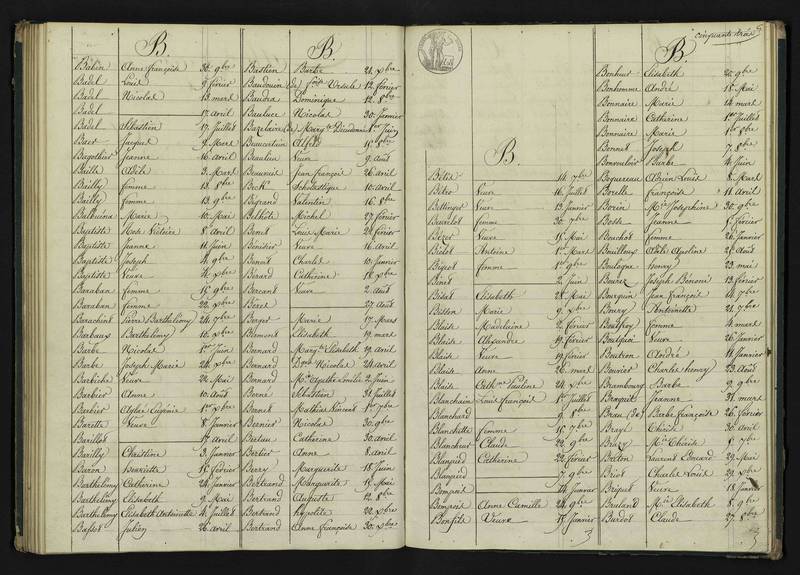 B.
Babin Anne françoise 30. 9bre
Badel Louis 9 février
Badel Nicolas 13 mars
Badel 17 avril
Badel Sébastien 17 Juillet
Baer Jacques 9 Mars
Bagothier Jeanne 16 avril
Baille Adèle 3 Mars
Bailly femme 13 8bre
Bailly femme 13 9bre
Balbuina Marie 10 Mai
Baptiste Rose Victoire 8 avril
Baptiste Jeanne 11 Juin
Baptiste Joseph 4 9bre
Baptiste Veuve 4 xbre
Baraban femme 15 9bre
Baraban femme 22 xbre
Barachint Pierre Barthélémy 24 7bre
Barbaux Barthélémy 10 xbre
Barbe Nicolas 1er Juin
Barbe Joseph Marie 24 xbre
Barbiche Veuve 24 Mai
Barbier Anne 10 Août
Barbier Aglaé Eugénie 1er xbre
Barette Veuve 8 Janvier
Barillot 1er avril
Barilly Christine 3 Janvier
Baron Henriette 15 février
Barthélémy Catherine 24 Janvier
Barthélémy Elisabeth 9 Mai
Barthélémy Elisabeth Antoinette 4 Juillet
Bassot Julien 26 avril
B.
Bastien Barbe 21 xbre
Baudouin (de) Ursule 12 février
Baudra Dominique 12 8bre
Bauluce Nicolas 30 Janvier
Bazelaire (de) 1er Juin
Beaucourtin Alfred 15 8bre
Baulin Veuve 9 Août
Beauvais Jean françois 26 avril
Beck Scholastique 10 avril
Begrand Valentin 16 8bre
Belhôte Michel 27 février
Benet Louis Marie 24 février
Bénisier Veuve 16 avril
Benoit Charles 10 Janvier
Bérard Catherine 18 xbre
Bercant Veuve 2 Août
Béret 27 Août
Berger Marie 17 Mars
Bermont Elisabeth 19 mars
Bernard Margte Elisabeth 19 avril
Bernard Dque Nicolas 24 avril
Bernard Mie Agathe 2 Juin
Berné Sébastien 31 Juillet
Bernet Mathias Vincent 1er 7bre
Bernier Nicolas 30 9bre
Bertau Catherine 30 avril
Bertier Anne 8 avril
Berry Marguerite 18 Juin
Bertrand Marguerite 15 Mai
Bertrand Auguste 12 8bre
Bertrand hypolite 22 xbre
Bertrand Anne françoise 30 xbre
B.
Bétis 14 7bre
Bétro Veuve 16 Juillet
Bettinger Veuve 13 Janvier
Beurlot femme 30 7bre
Bézer Veuve 15 Mai
Bielot Antoine 1er Mars
Bigot femme 1er 9bre
Binet 2 Juin
Bisat Elisabeth 28 Mai
Bisson Marie 9 xbre
Blaise Madelaine 2 février
Blaise Alexandre 19 février
Blaise Veuve 19 février
Blaise Anne 26 mars
Blaise Cathne Pauline 24 xbre
Blanchain Louis françois 1er Juillet
Blanchard 9 8bre
Blanchette femme 15 7bre
Blancheur Claude 22 9bre
Blanpied Catherine 22 février
Blanpied 7 9bre
Bompoit 24 Janvier
Bompoix Anne Camille 24 9bre
Bonfils Veuve 15 Janvier
cinquante trois
B.
Bonheur Elisabeth 22 9bre
Bonhomme André 18 Mai
Bonnaire Marie 14 mars
Bonnaire Catherine 1er Juillet
Bonnaire Marie 1er 9bre
Bonnet Joseph 7 8bre
Bonvalois Barbe 4 Juin
Boquereau Albin Louis 8 Mars
Borelle françoise 11 Avril
Borin Mie Joséphine 30 9bre
Bosse Jeanne 5 février
Bouchot femme 26 Janvier
Bouilloux Adèle Apoline 26 Août
Boulagne henry 23 mai
Bourez Joseph Bénoni 13 février
Bourguin Jean françois 14 7bre
Boury Antoinette 21 7bre
Boutfroy femme 4 mars
Boutpoix Veuve 26 Janvier
Boutron André 11 Janvier
Bouvier Charles henry 23 Août
Brambourg Barbe 9 9bre
Braquier Jeanne 31 mars
Brau (de) Barbe françoise 26 février
Brayl Thérèse 30 avril
Brézy Mie Thérèse 8 7bre
Breton Laurent Edouard 29 Mai
Briot Charles Louis 29 xbre
Briquet Veuve 18 Janvier
Bruland Mie Elisabeth 8 9bre
Burdot Claude 27 8bre